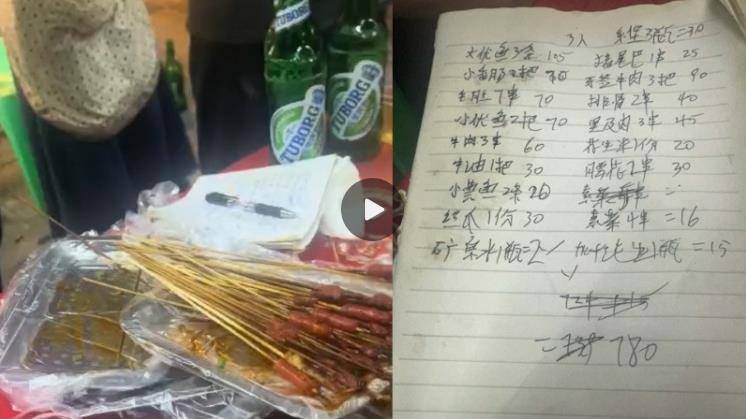 TUBORG
TUBORG
3人 乐堡3瓶=30
大优鱼3条 105 猪尾巴1串 25
小香肠2把 牙签牛肉3把 90
毛肚7串 70 排骨2串 40
小优鱼2把 70 里及肉3串 45
牛肉3串 60 花生米1份 20
牛油1把 30 腰花2串 30
小黄鱼2条 20
丝瓜1份 30 素菜4串=16
矿泉水1瓶=2 加多宝1瓶=15
=780